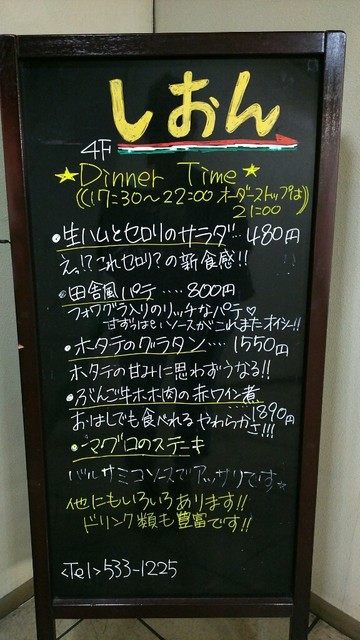 しおん
4F
★Dinner Time★
((17:30〜22:00 オーダーストップは))
21:00
•生ハムとセロリのサラダ…480円
えっ!?これセロリ?の新食感!!
•田舎風パテ....800円
フォワグラ入りのリッチなパテ♡
すずっぱといソースがこれまたオイシー!!
•ホタテのグラタン....1550円
ホタテの甘みに思わずうなる!!
•ぶんご牛ホホ肉の赤ワイン煮
.....1890円
おはしでも食べれるやわらかさ!!!
•マグロのステーキ
バルサミコソースでアッサリです☆
他にもいろいろあります!!
ドリンク類も豊富です!!
<Tel>533-1225